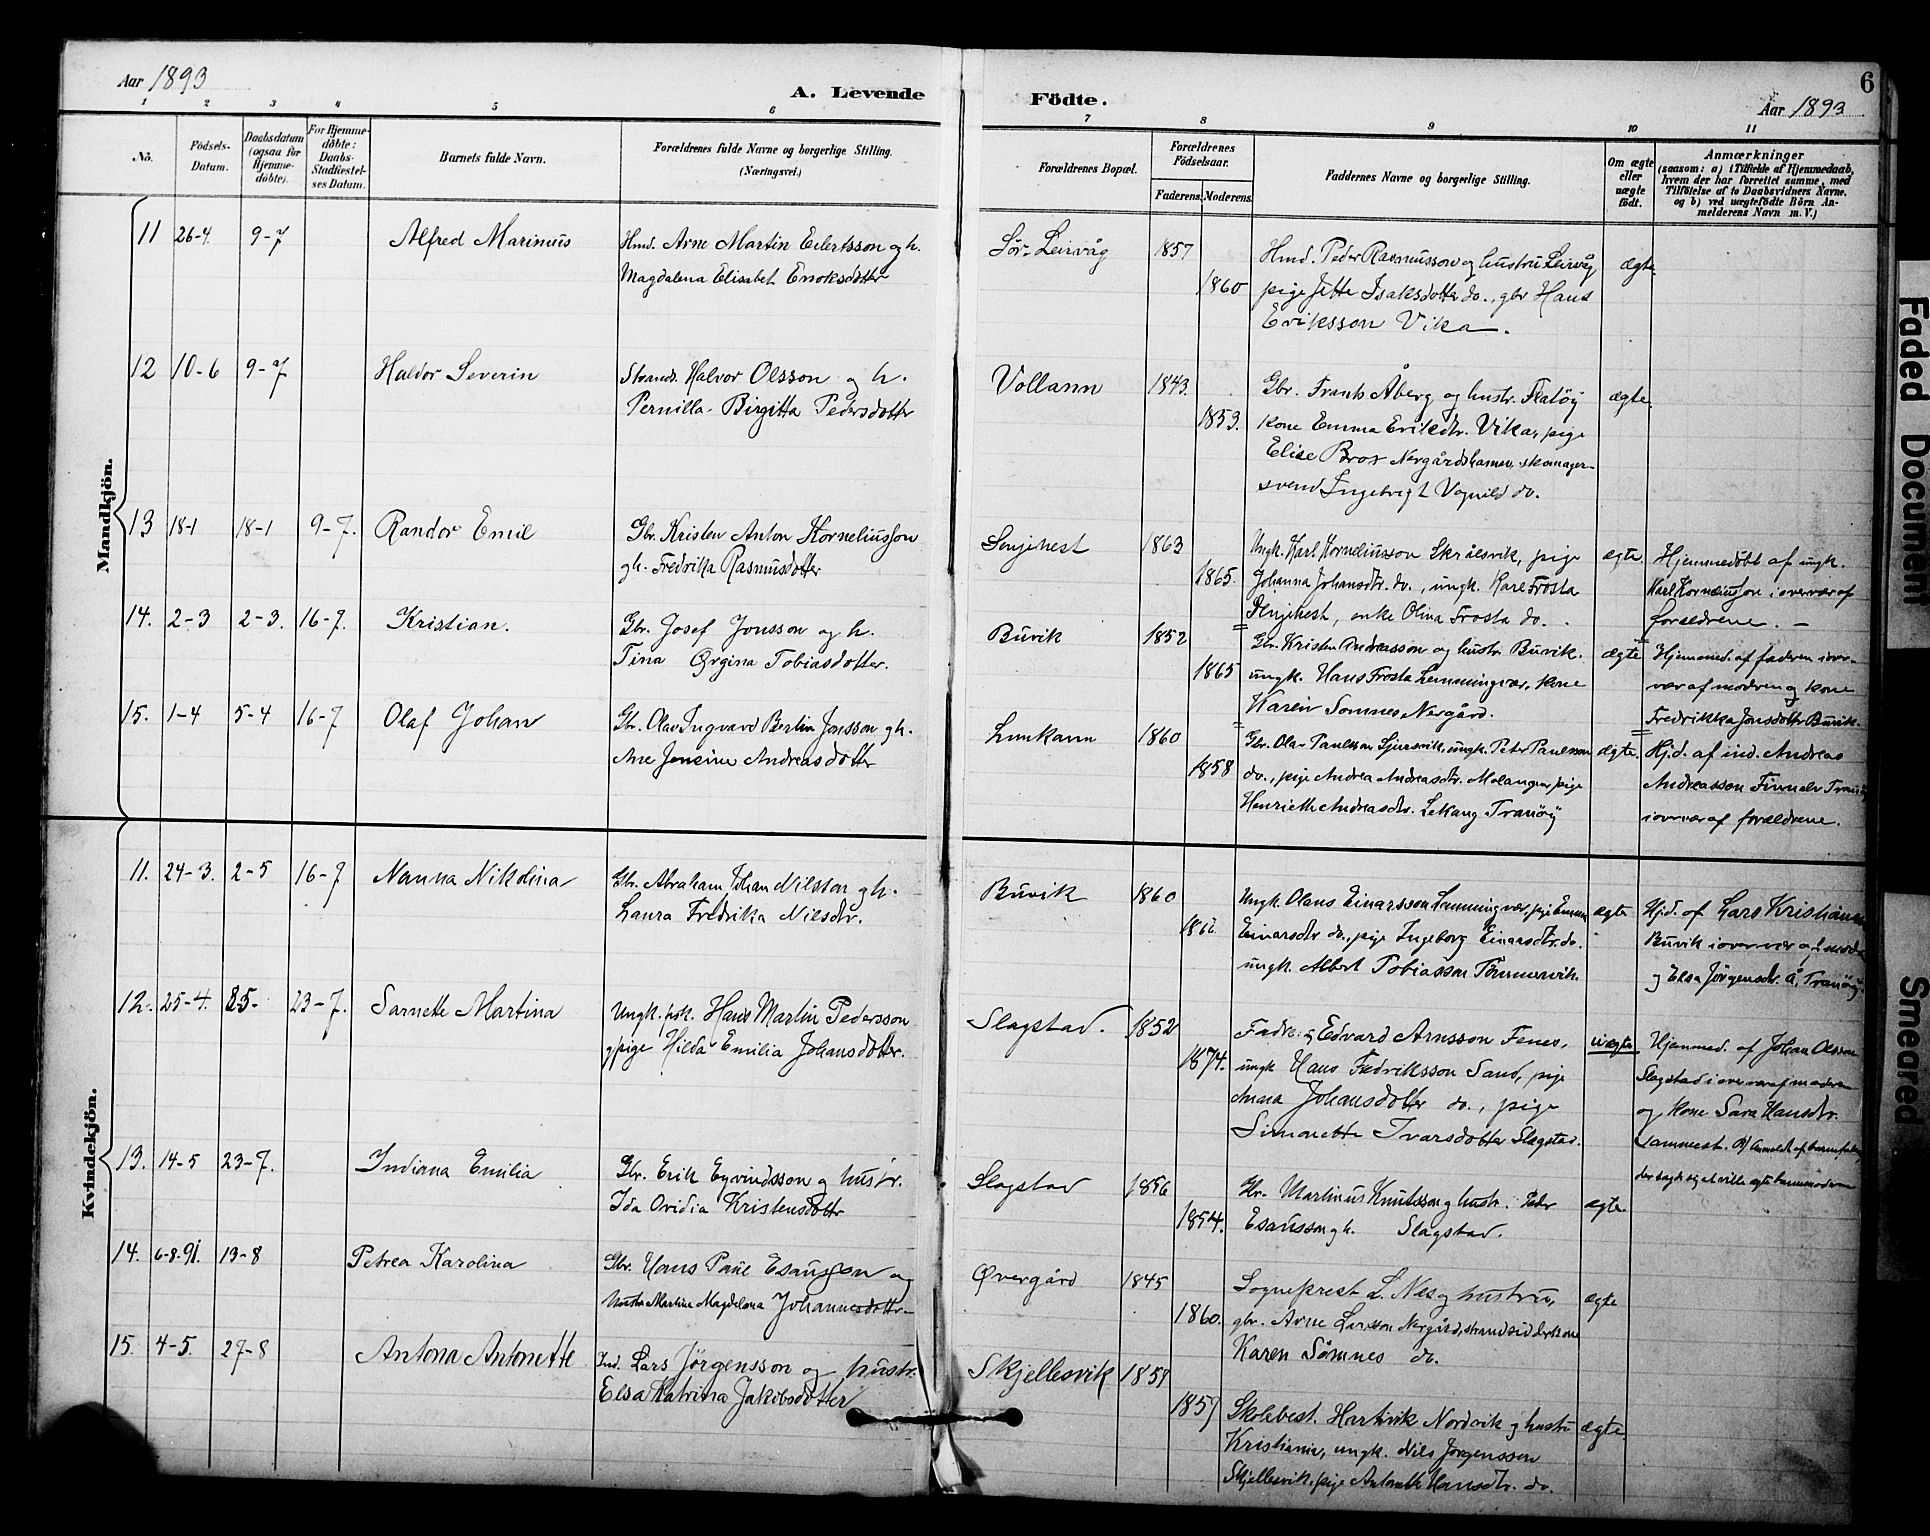 Aar 1893
A. Levende
Födte.
6
Aar 1893
1 2 3 4 5 6 7 8 9 10 11
No.
Födsels-
Datum.
Daabsdatum
(ogsaa for
Hjemme-
döbte).
For Hjemme-
döbte:
Daabs-
Stadfæstel-
ses Datum.
Barnets fulde Navn.
Forældrenes fulde Navne og borgerlige Stilling.
(Næringsvei.)
Forældrenes Bopæl.
Forældrenes
Födselsaar.
Faderens. Moderens.
Faddernes Navne og borgerlige Stilling.
Om ægte
eller
uægte
födt.
Anmærkninger
(saasom: a) i Tilfælde af Hjemmedaab,
hvem der har forrettet samme, med
Tilföielse af to Daabsvidners Navne.
og b) ved uægtefödte Börn An-
melderens Navn m. V.)
Mandkjön.
11 26-4. 9-7 Alfred Marinus
Hmd. Arne Martin Eilertsson og h.
Magdalena Elisabet Enoksdotter
Sör-Leirvåg 1857
1860
Hmd. Peder Rasmusson og hustru Leirvåg
pige Jette Isaksdotter do., gbr Hans
Eriksson Vika.
ægte
12 10-6 9-7 Haldor Severin
Strands. Halvor Olsson og h.
Pernilla Birgitta Pedersdotter
Vollann 1843.
1853.
Gbr. Frants Åberg og hustr. Flatöy
kone Emma Eriksdtr. Vika, pige
Elise Brox Nergårdshamn, skomager-
svend Ingebrigt Vognild do.
ægte.
13 18-1 18-1 9-7. Randor Emil
Gbr. Kristen Anton Korneliusson
gh. Fredrika Rasmusdotter
Senjehest 1863
1865.
Ungk. Karl Korneliusson Skrålsvik, pige
Johanna Johansdtr do., ungk. Karl Frosta
Senjehest, enke Olina Frosta do.
ægte.
Hjemmedöbt af ungk.
Karl Korneliusson i overvær af
forældrene. —
14. 2-3 2-3. 16-7. Kristian.
Gbr. Josef Jonsson og h.
Tina Ørgina Tobiasdotter.
Buvik 1852
1865
Gbr. Kristen Andreasson og hustr. Buvik.
ungk. Hans Frosta Lemmingvær, kone
Karen Somnes Nergård.
ægte
Hjemmed. af faderen i over-
vær af modren og kone
Fredrikka Jonsdotter Buvik.
15. 1-4 5-4 16-7 Olaf Johan
Gbr. Olav Ingvard Berlin Jonsson gh.
Ane Jensine Andreasdotter
Lunkann 1860
1858
Gbr. Olav Paulsson Gjursvik, ungk. Peter Paulsson
do., pige Andrea Andreasdtr. Malangen, pige
Henriette Andreasdtr. Lekang Tranöy
ægte.
Hj.d. af ind. Andreas
Andreasson Finnelv Tranöy
i overvær af forældrene.
Kvindekjön.
11. 24-3. 2-5 16-7 Nanna Nikolina
Gbr. Abraham Johan Nilsson gh.
Laura Fredrika Nilsdtr.
Buvik 1860
Ungk. Olaus Einarsson Lemmingvær, pige Emma
Einarsdtr do., pige Ingeborg Einarsdtr. do.
ungk. Albert Tobiasson Tömmervik.
ægte
Hj.d. af Lars Kristians
Buvik i overvær af moder
og Elsa Jörgensdtr. Å, Tranöy.
12. 25-4. 25- 23-7. Sarnette Martina
Ungk. Hans Martin Pedersson
gpige Hilda Emilia Johansdotter.
Slagstad. 1852
1874.
Fadr. og Edvard Arnsson Fenes,
ungk Hans Fredriksson Sand, pige
Anna Johansdotter do., pige
Simonette Ivarsdotter Slagstad.
uægte
Hjemmed. af Johan Olsson
Slagstad i overvær af moderen
og kone Sara Hansdtr.
sammest.
13. 14-5 23-7. Indiana Emilia
Gbr. Erik Eyvindsson og hustr.
Ida Ovidia Kristensdotter
Slagstad 1856
1854.
Gbr. Martinus Knutsson g hustr. Peder
Esausson gh. Slagstad.
ægte.
14. 6-8.91. 13-8 Petrea Karolina
Gbr. Hans Paul Esausson og
hustr Martine Magdelena Johannesdotter
Øvergård 1845
1860.
Sogneprest L. Nes g hustru,
gbr. Arne Larsson Nergård, strandsidderkone
Karen Sömnes do.
ægte
15. 4-5 27-8 Antona Antonette
Ind. Lars Jörgensson og hustr.
Elsa Katrina Jakobsdotter
Skjellesvik 1859
1857
Skolebest. Hartvik Nordvik g hustr
Kristianne, ungk. Nils Jörgensson
Skjellesvik, pige Antonette Hansdtr. do.
ægte
Faded Document
Smeared